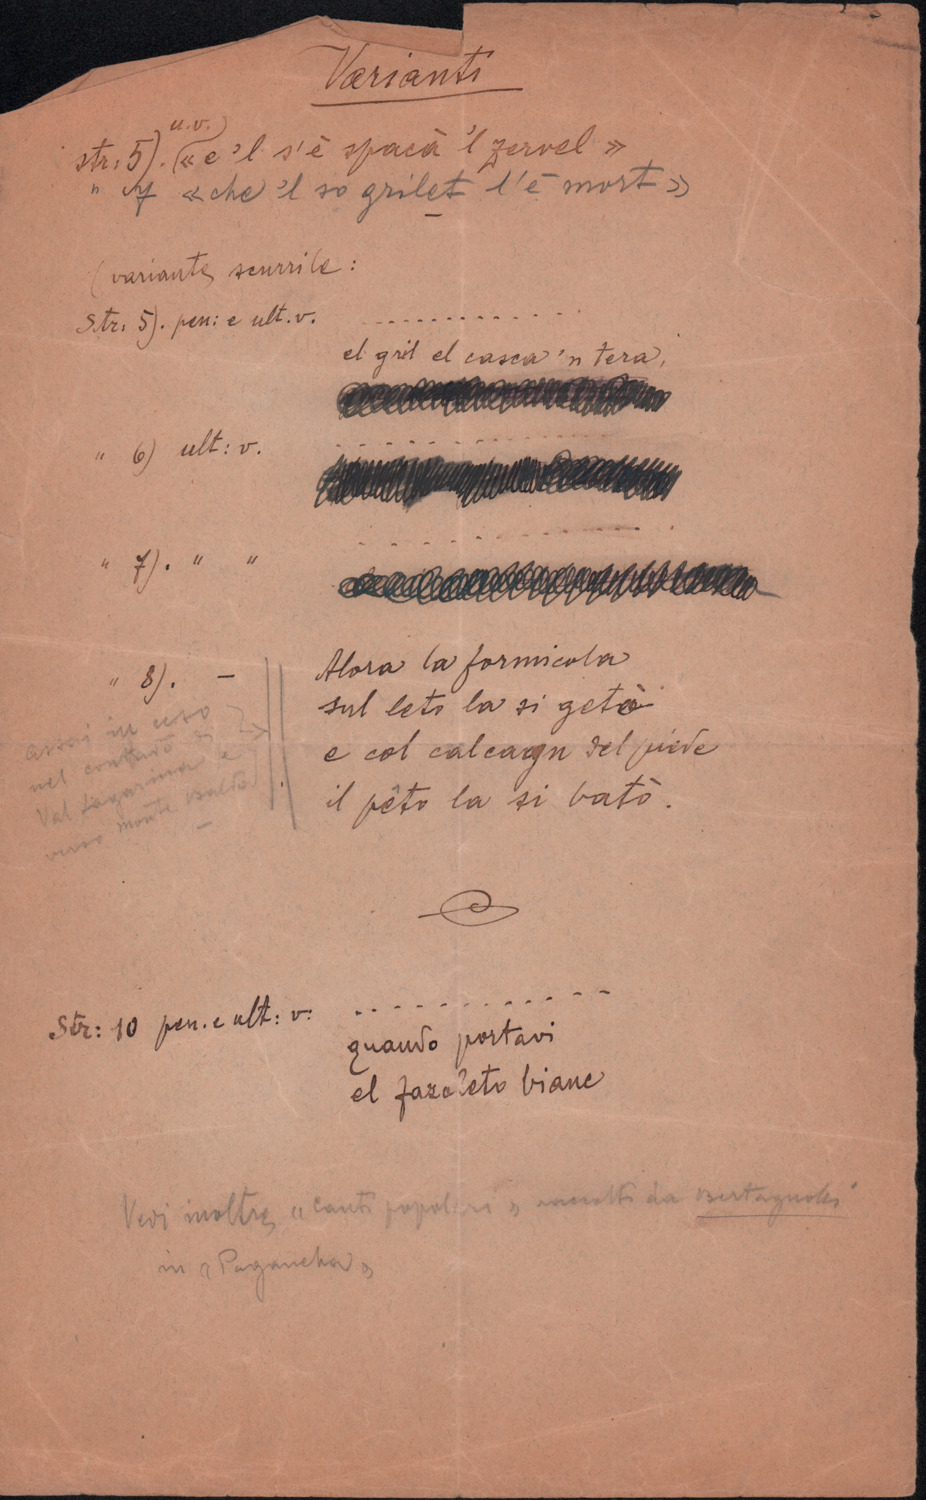 Varianti
u.v.)
str: 5). («e 'l s'è spacà 'l zervel»
" 7 «che 'l so grilet l'è mort»
(variante scurrile:
Str: 5). pen: e ult. v. . . . . . . . . . . . . .
el gril el casca 'n tera,
" 6) ult: v. . . . . . . . . . . . .
" 7). " " . . . . . . . . . . .
" 8). – Alora la formicola
sul leto la si getò
e col calcagn del piede
il pèto la si batò.
assai in uso
nel contado di
Val Lagarina e
verso monte Baldo
Str: 10 pen. e ult: v: . . . . . . . . . . . .
quando portavi
el fazoleto bianc
Vedi inoltre «canti popolari» raccolti da Bertagnolli
in «Paganella»